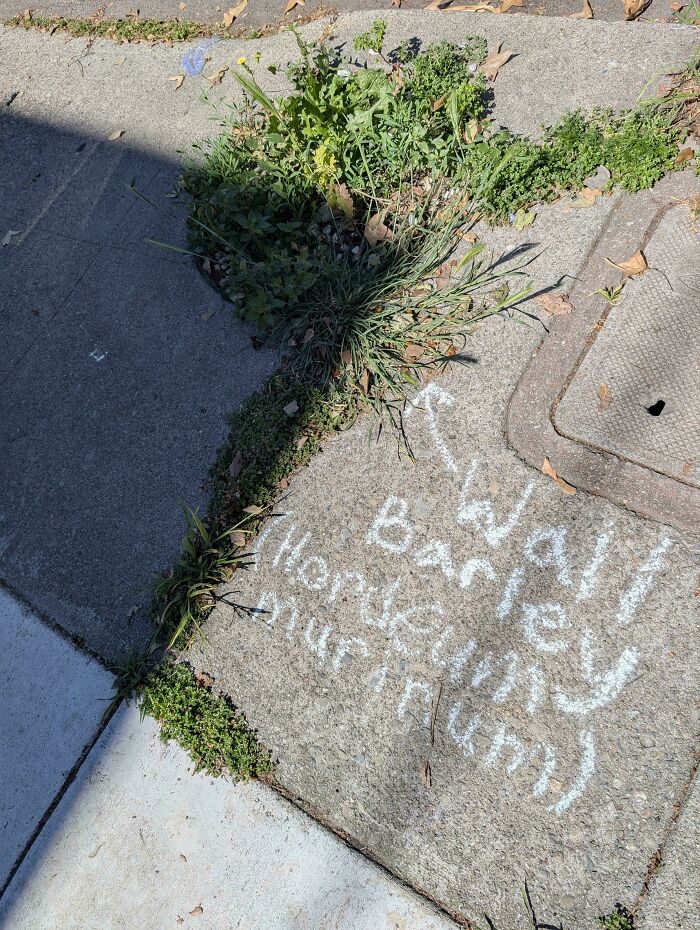 Wall
Barley
(Hordeum
murinum)